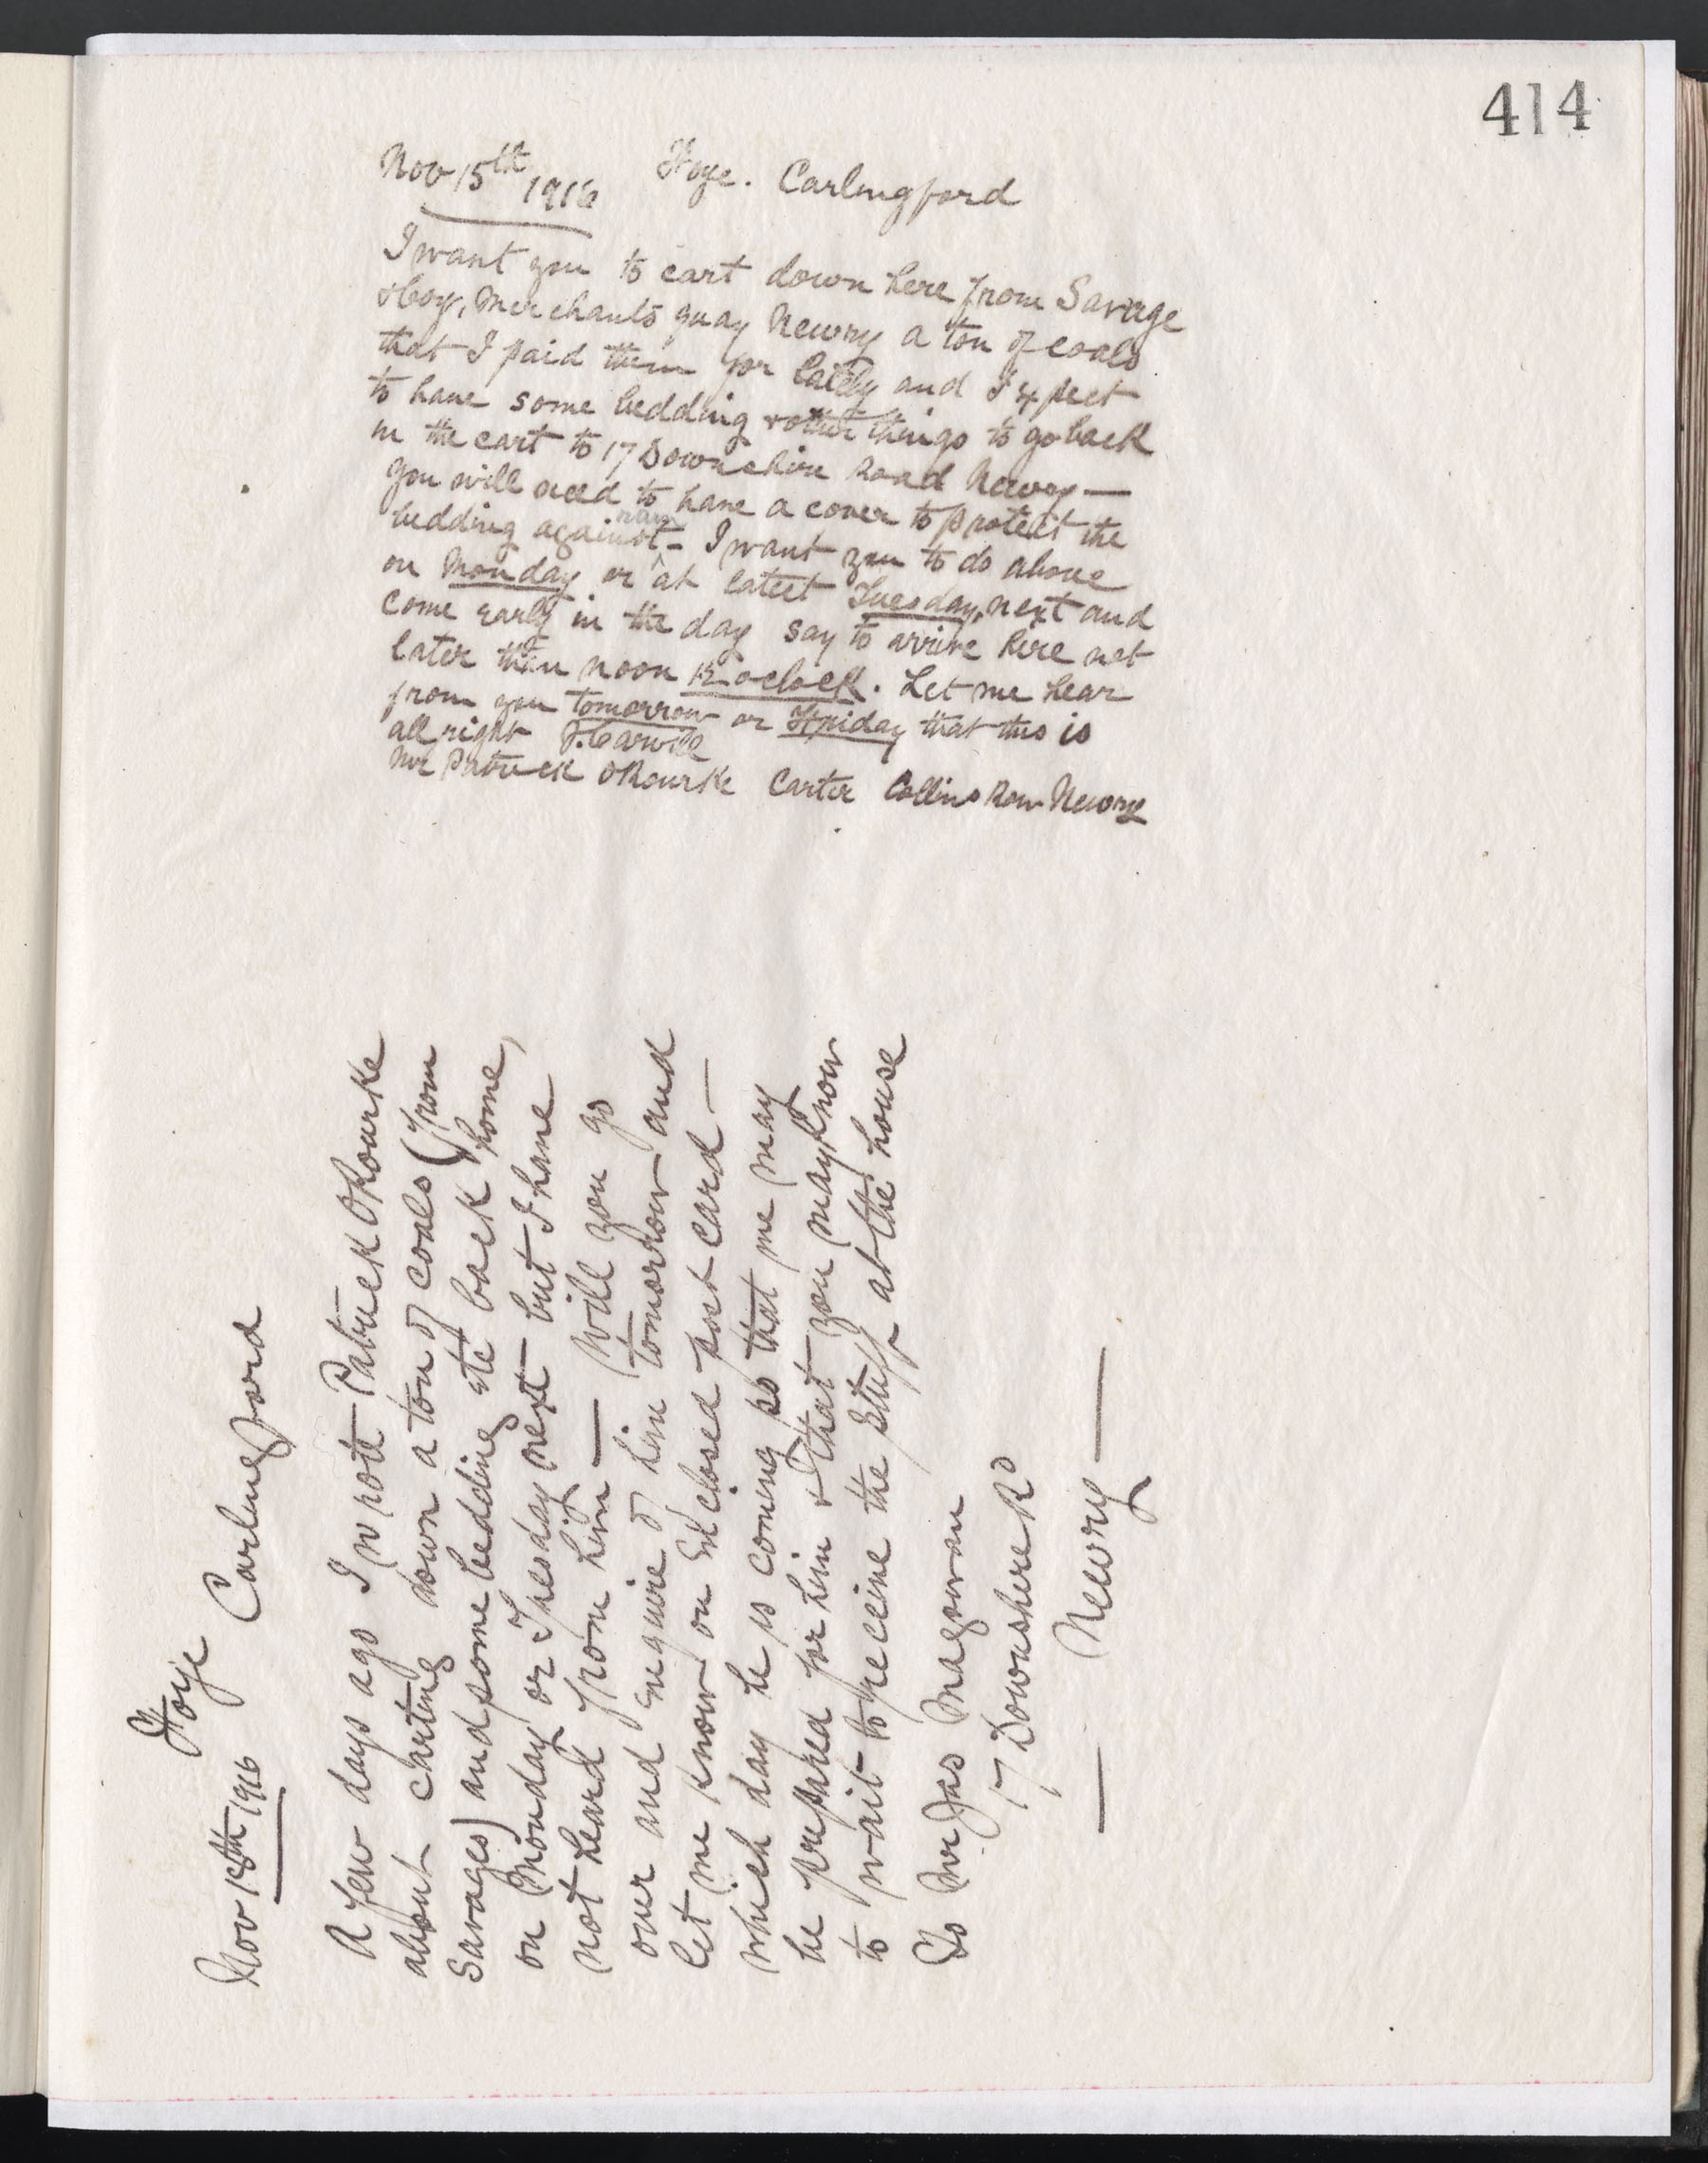 414
Nov 15th 1916 Ffoye. Carlingford
I want you to cart down here from Savage
& Coy, Merchants quay Newry a ton of coals
that I paid them for lately and I expect
to have some bedding & other things to go back
in the cart to 17 Downshire Road Newry —
you will need to have a cover to protect the
bedding against rain - I want you to do above
on Monday or at latest Tuesday, next and
come early in the day say to arrive here not
later than noon 12 oclock. Let me hear
from you tomorrow or Friday that this is
all right J. Carvill
Mr Patrick ORourke Carter Collins Row Newry
Nov 18th 1916 Ffoye Carlingford
A few days ago I wrote Patrick ORourke
about carting down a ton of coals (from
Savages) and some bedding etc back home,
on Monday or Tuesday next but I have
not heard from him — Will you go
over and enquire of him tomorrow and
let me know on enclosed post card —
which day he is coming so that me may
be prepared for him & that you may know
to wait to receive the stuff at the house
To Mr Jas Magowan
17 Downshire Rd
— Newry —